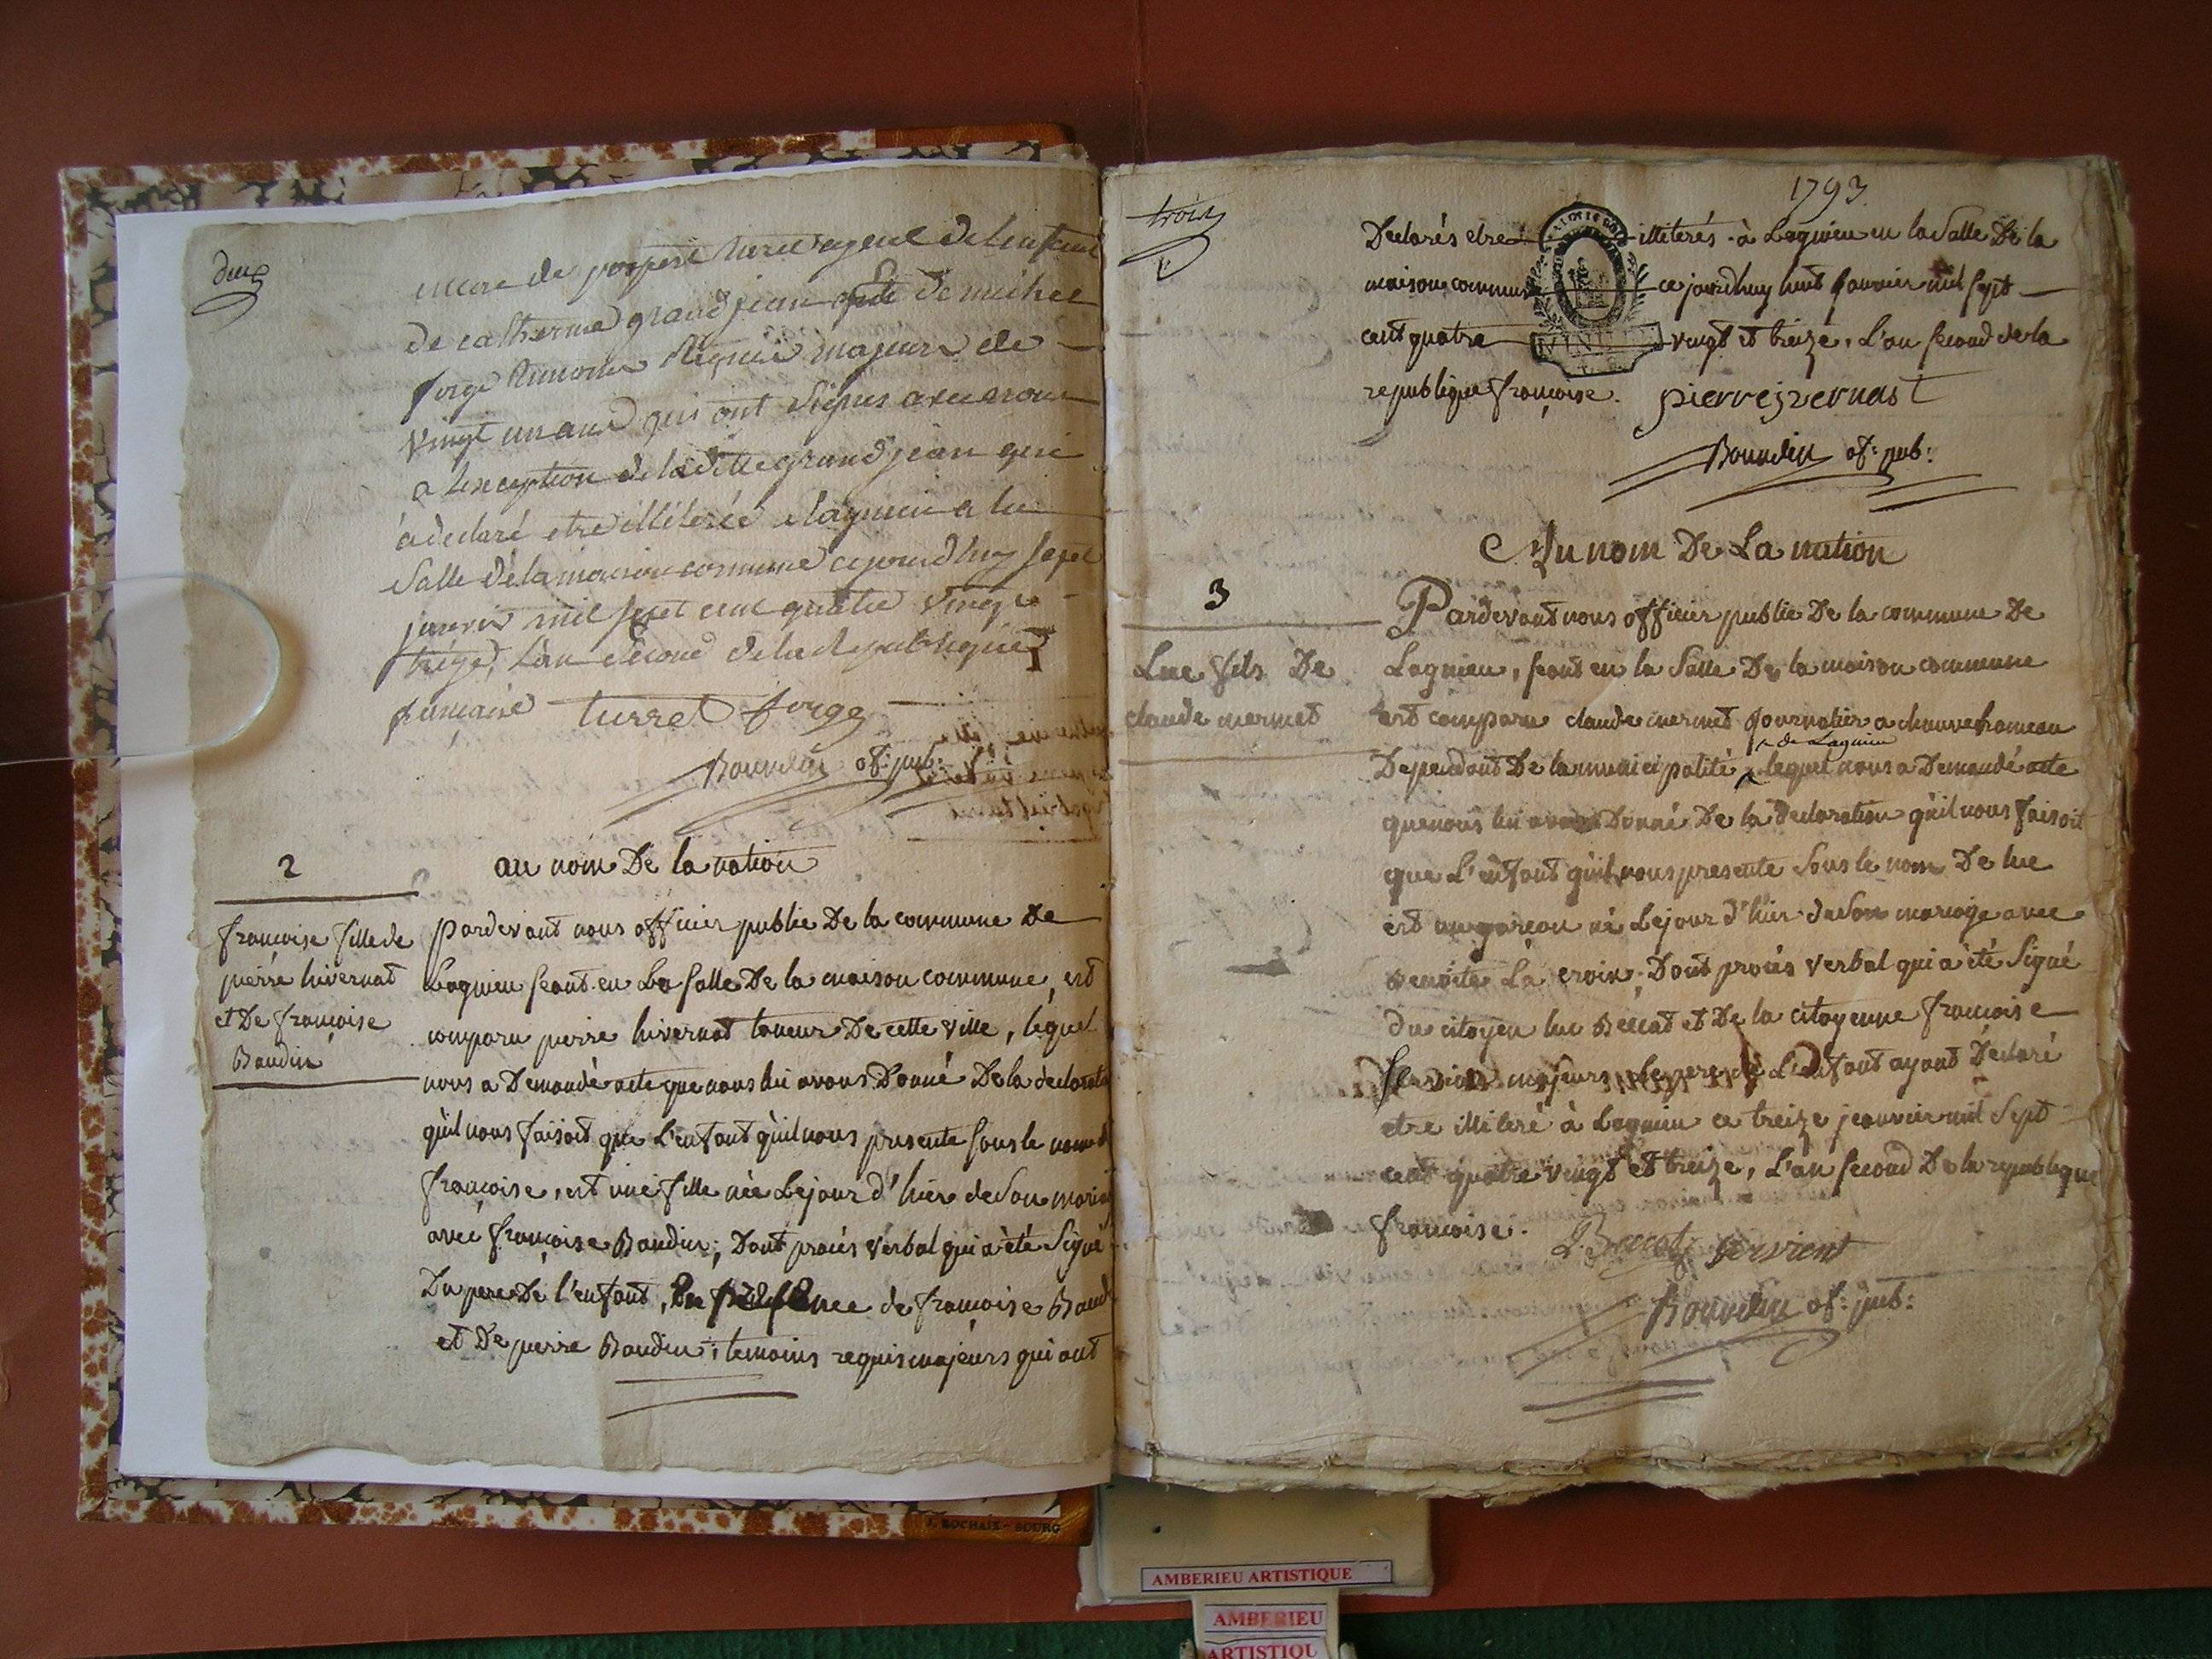 deux
encore de
de catherine grand jean de michel
forge majeurs de
vingt un ans qui ont signés avec nous
a lexception de laditte grand jean qui
a declaré etre illiterée a lagnieu a la
salle de la maison commune cejourdhuy sept
janvier mil sept cent quatre vingt
treize, l'an second de la republique
francaise turret forge
Bourdin of: pub:
2
au nom De la nation
francoise fille de
pierre hivernat
et De francoise
Baudin
pardevant nous officier public De la commune De
Lagnieu seant en La salle De la maison commune, est
comparu pierre hivernat De cette ville, lequel
nous a Demandé acte que nous lui avons Donné De la declarat
qu'il nous faisoit que L'enfant qu'il nous presente sous le nom d
francoise, est une fille née Le jour d'hier de son mariag
avec francoise Baudin; Dont procés verbal qui a été signé
Du pere De l'enfant, de francoise Baud
et De pierre Baudin; temoins requis majeurs qui ont
trois
1793
Declarés etre illiterés à Lagnieu en la salle De la
maison commune ce jourdhuy huit janvier mil sept
cent quatre vingt et treize, L'an second de la
republique francoise. pierre
Bourdin of: pub:
Au nom De La nation
3
Luc fils De
claude mermet
Pardevant nous officier public De la commune De
Lagnieu, seant en la salle De la maison commune
est comparu claude mermet journalier a hameau
de Lagnieu
Dependant De la municipalité lequel nous a Demandé acte
que nous lui avons Donné De la declaration qu'il nous faisoit
que L'enfant qu'il nous presente sous le nom De luc
est un garcon né Le jour d'hier de son mariage avec
benoite La croix; Dont procés verbal qui a été signé
du citoyen luc Beccat et De la citoyenne francoise
majeurs Le pere de L'enfant ayant Declaré
etre illiteré à Lagnieu ce treize jeanvier mil sept
cent quatre vingt et treize, L'an second De la republique
francoise. L. Beccat servient
Bourdin of: pub:
J. ROCHAIX - BOURG
AMBERIEU ARTISTIQUE
AMBERIEU
ARTISTIQU